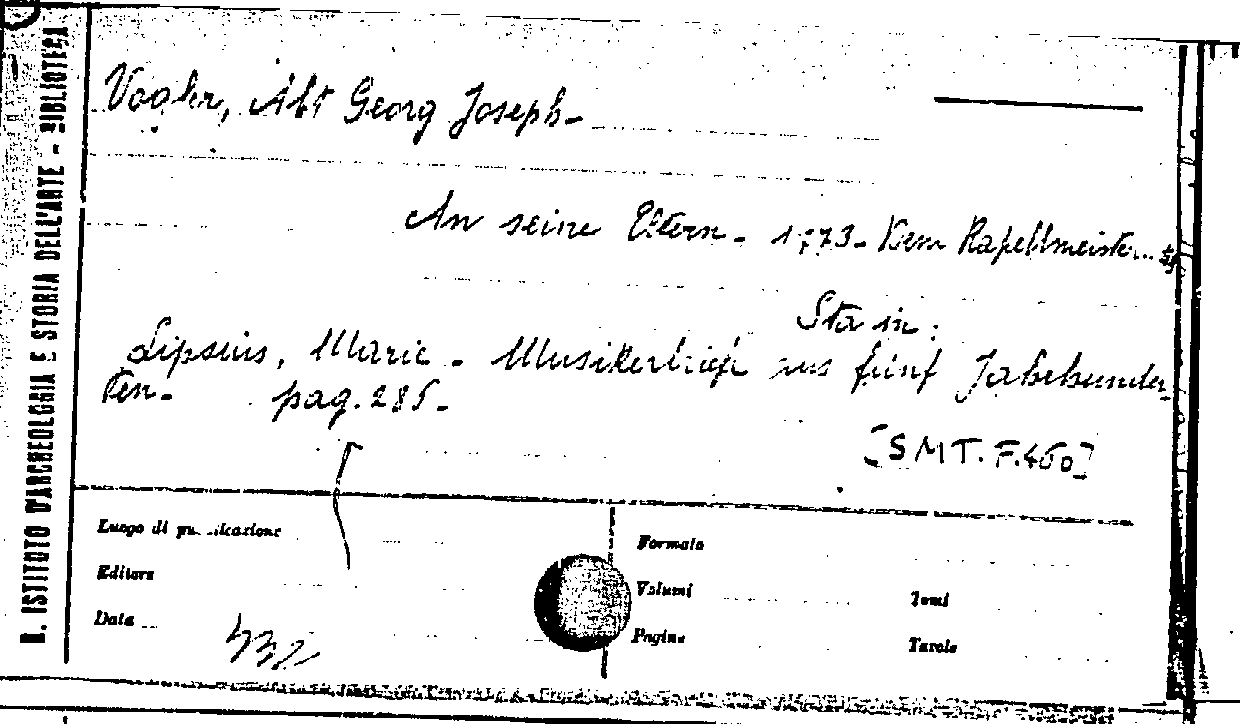 R. ISTITUTO D'ARCHEOLOGIA E STORIA DELL'ARTE - BIBLIOTECA
Vogler, Abt Georg Joseph-
An seine Eltern - 1773 - Dem Kapellmeister...
Sta in:
Lipsius, Marie - Musikerbriefe aus fünf Jahrhunder
ten - pag. 285 -
[SMT. F.450]
Luogo di pubblicazione
Formato
Editore
Volumi
Tomi
Data
Pagine
Tavole